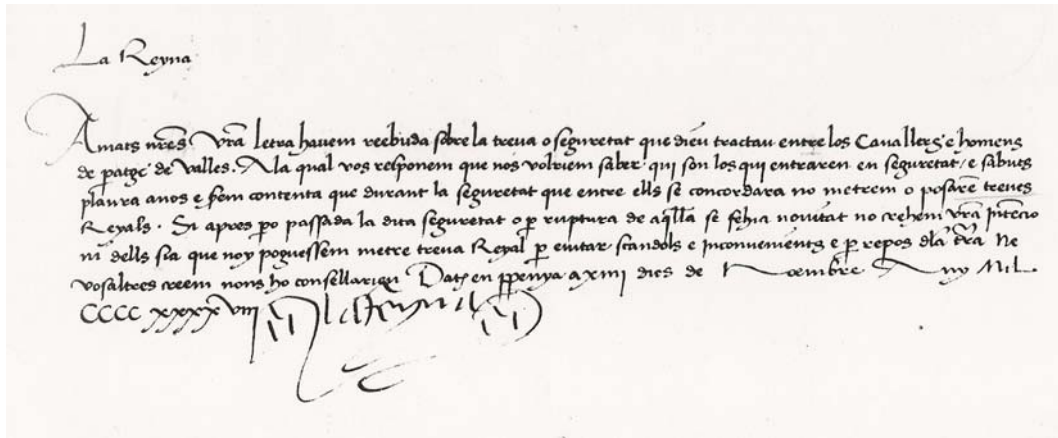 La Reyna
Amats nr̃es Vr̃a letra havem reebuda sobre la treva o seguretat que dieu tractau entre los Cavallers e homens
de patge de Valles. Ala qual vos responem que nos volriem saber qui son los qui entraren en seguretat / e sabuts
plaura anos e sem contenta que durant la seguretat que entre ells se concordara no metrem o posarẽ treves
Reyals. Si apres po passada la dita seguretat o p ruptura de aq̃lla se fehia novitat no crehem vr̃a intencio
ni dells sia que noy poguessem metre treva Reyal p evitar scandols e inconvenients e p repos dla tr̃a Ne
vosaltres creem nons ho consellarien Dat en ppenya a xiiii dies de Noembre Any Mil
CCCC xxxx viii La Reyna